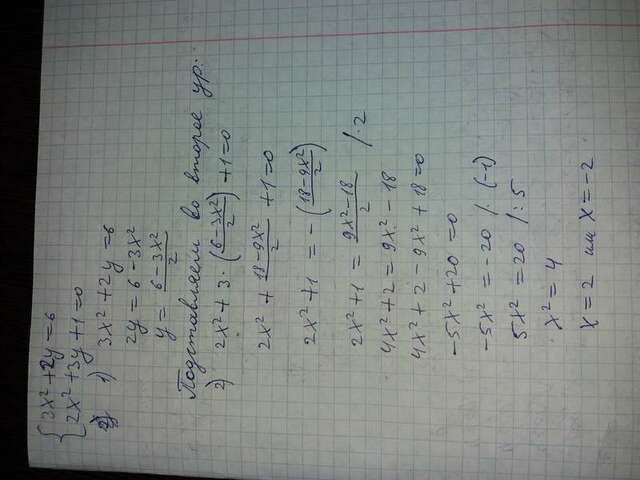 { 3x² + 2y = 6
2x² + 3y + 1 = 0
1) 3x² + 2y = 6
2y = 6 - 3x²
y = (6 - 3x²)/2
Подставляем во второе ур:
2) 2x² + 3 · ((6 - 3x²)/2) + 1 = 0
2x² + (18 - 9x²)/2 + 1 = 0
2x² + 1 = -((18 - 9x²)/2)
2x² + 1 = (9x² - 18)/2 /·2
4x² + 2 = 9x² - 18
4x² + 2 - 9x² + 18 = 0
-5x² + 20 = 0
-5x² = -20 /· (-1)
5x² = 20 /: 5
x² = 4
x = 2 или x = -2